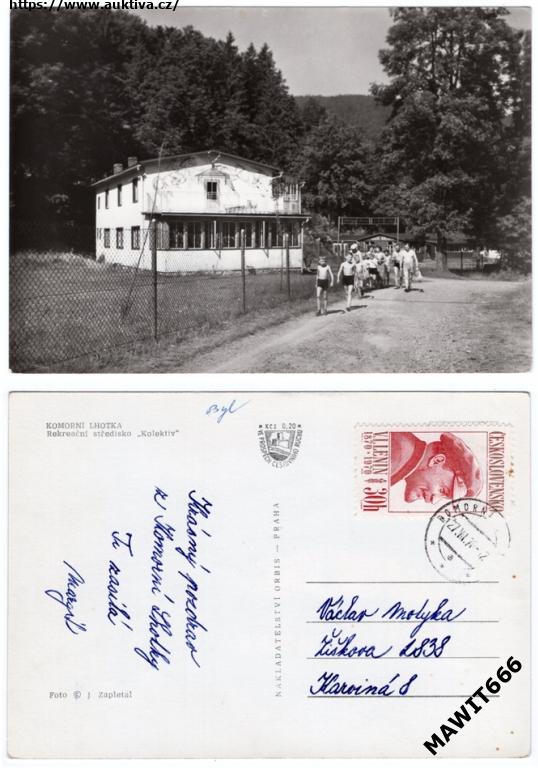 https://www.auktiva.cz/
KOMORNÍ LHOTKA
Rekreační středisko „Kolektiv"
Byl
* KČS 0,20 *
VE PROSPĚCH CESTOVNÍHO RUCHU
ČESKOSLOVENSKO
V.I. LENIN
1870 • 1970
30h
KOMORNÍ
Krásný pozdrav
z Komorní Lhotky
Ti zasílá
NAKLADATELSTVÍ ORBIS — PRAHA
Václav Motyka
Žižkova 2838
Karviná 8
Foto © J Zapletal
MAWIT666